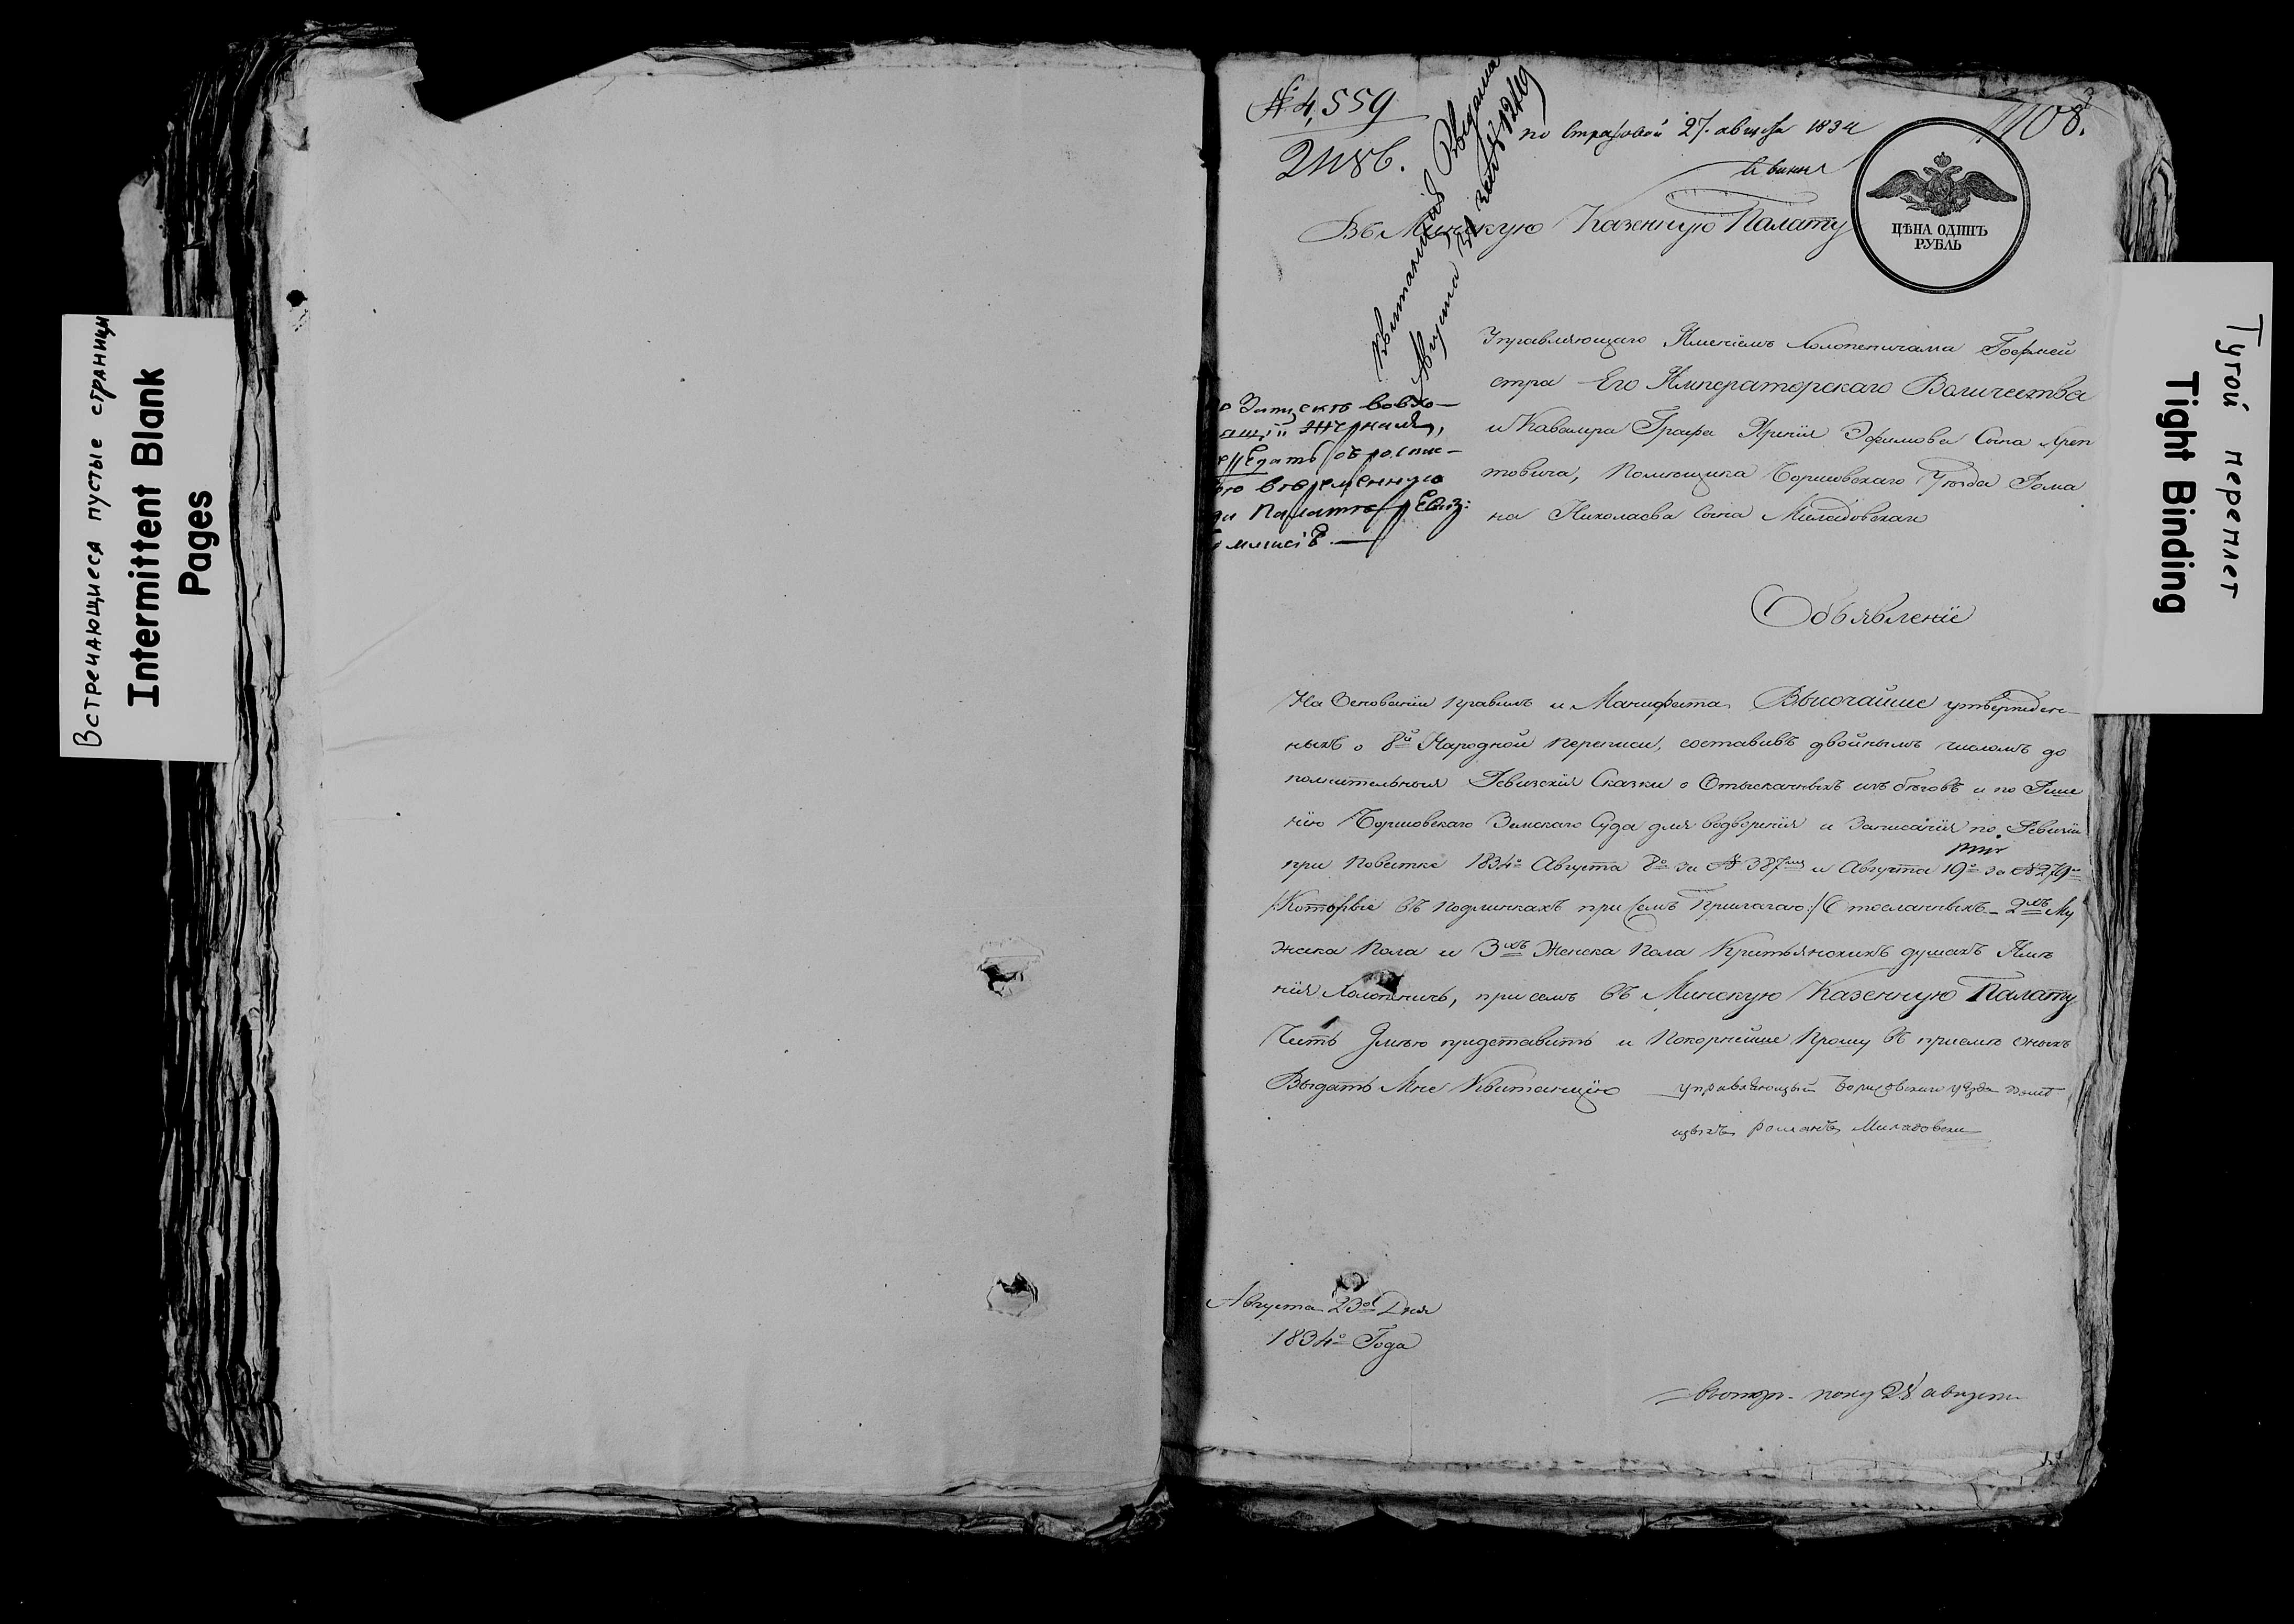 Встречающиеся пустые страницы
Intermittent Blank
Pages
№ 4,559
27. августа 1834
1108.
ЦѢНА ОДИНЪ
РУБЛЬ
Въ Минскую Казенную Палату
Квитанція Выдана
Августа 31
Управляющаго Имѣніемъ Холопеничами Гофмей
стра Его Императорскаго Величества
и Кавалера Графа Иринія Эфимова Сына Хреп
товича, Помѣщика Борисовскаго Уѣзда Рома
на Николаева Сына Миладовскаго
Объявленіе
На Основаніи правилъ и Манифеста Высочайше утвержден-
ныхъ о 8й Народной переписи, составивъ двойнымъ числомъ до
полнительныя Ревизскія Сказки о Отысканныхъ изъ бѣговъ и по Реше
нію Борисовскаго Земскаго Суда для водворенія и Записанія по Ревизіи
при Повестке 1834о Августа 8о за № 387 и Августа 19о за № 279
/:Которые въ подлинникахъ при семъ Прилагаю:/ Отосланныхъ - 2хъ Му
жеска Пола и 3хъ Женска Пола Крестьянскихъ душахъ Имѣ
нія Холопеничь, при семъ въ Минскую Казенную Палату
Честь Имѣю представить и Покорнейше Прошу въ пріеме оныхъ
Выдать Мне Квитанцію
управляющый Борисовскаго уезда помѣ
щыкъ Романъ Миладовски
Августа 23 Дня
1834о Года
28 август
Тугой переплет
Tight Binding